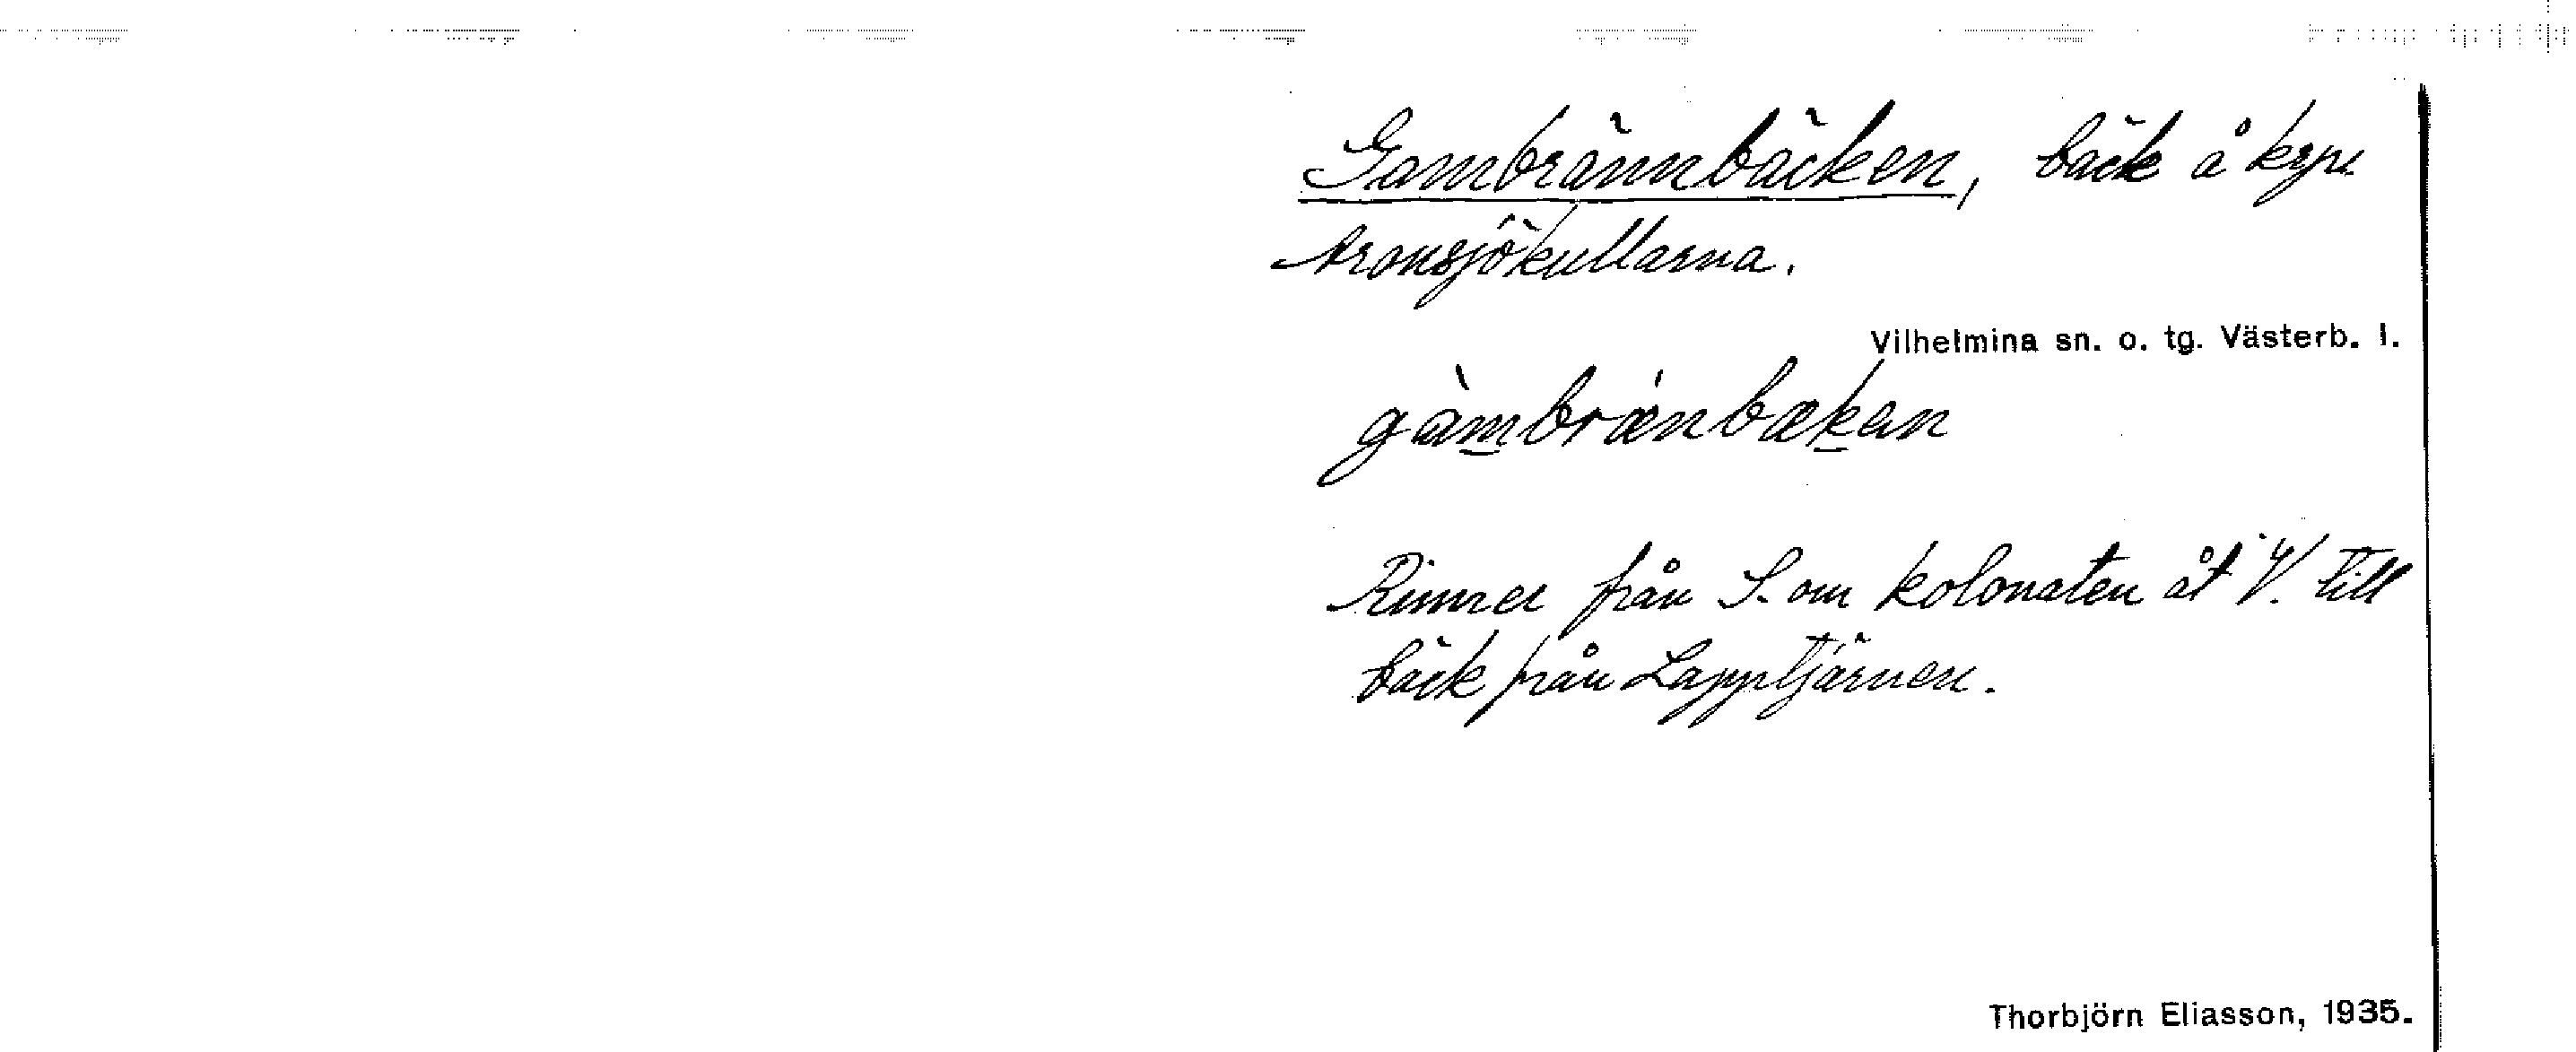 Gambrännbäcken, bäck å krpn
Aronsjökullarna.
Vilhelmina sn. o. tg. Västerb. l.
gàmbrǽnbækan
Rinner från S. om kolonaten åt V. till
bäck från Lapptjärnen.
Thorbjörn Eliasson, 1935.